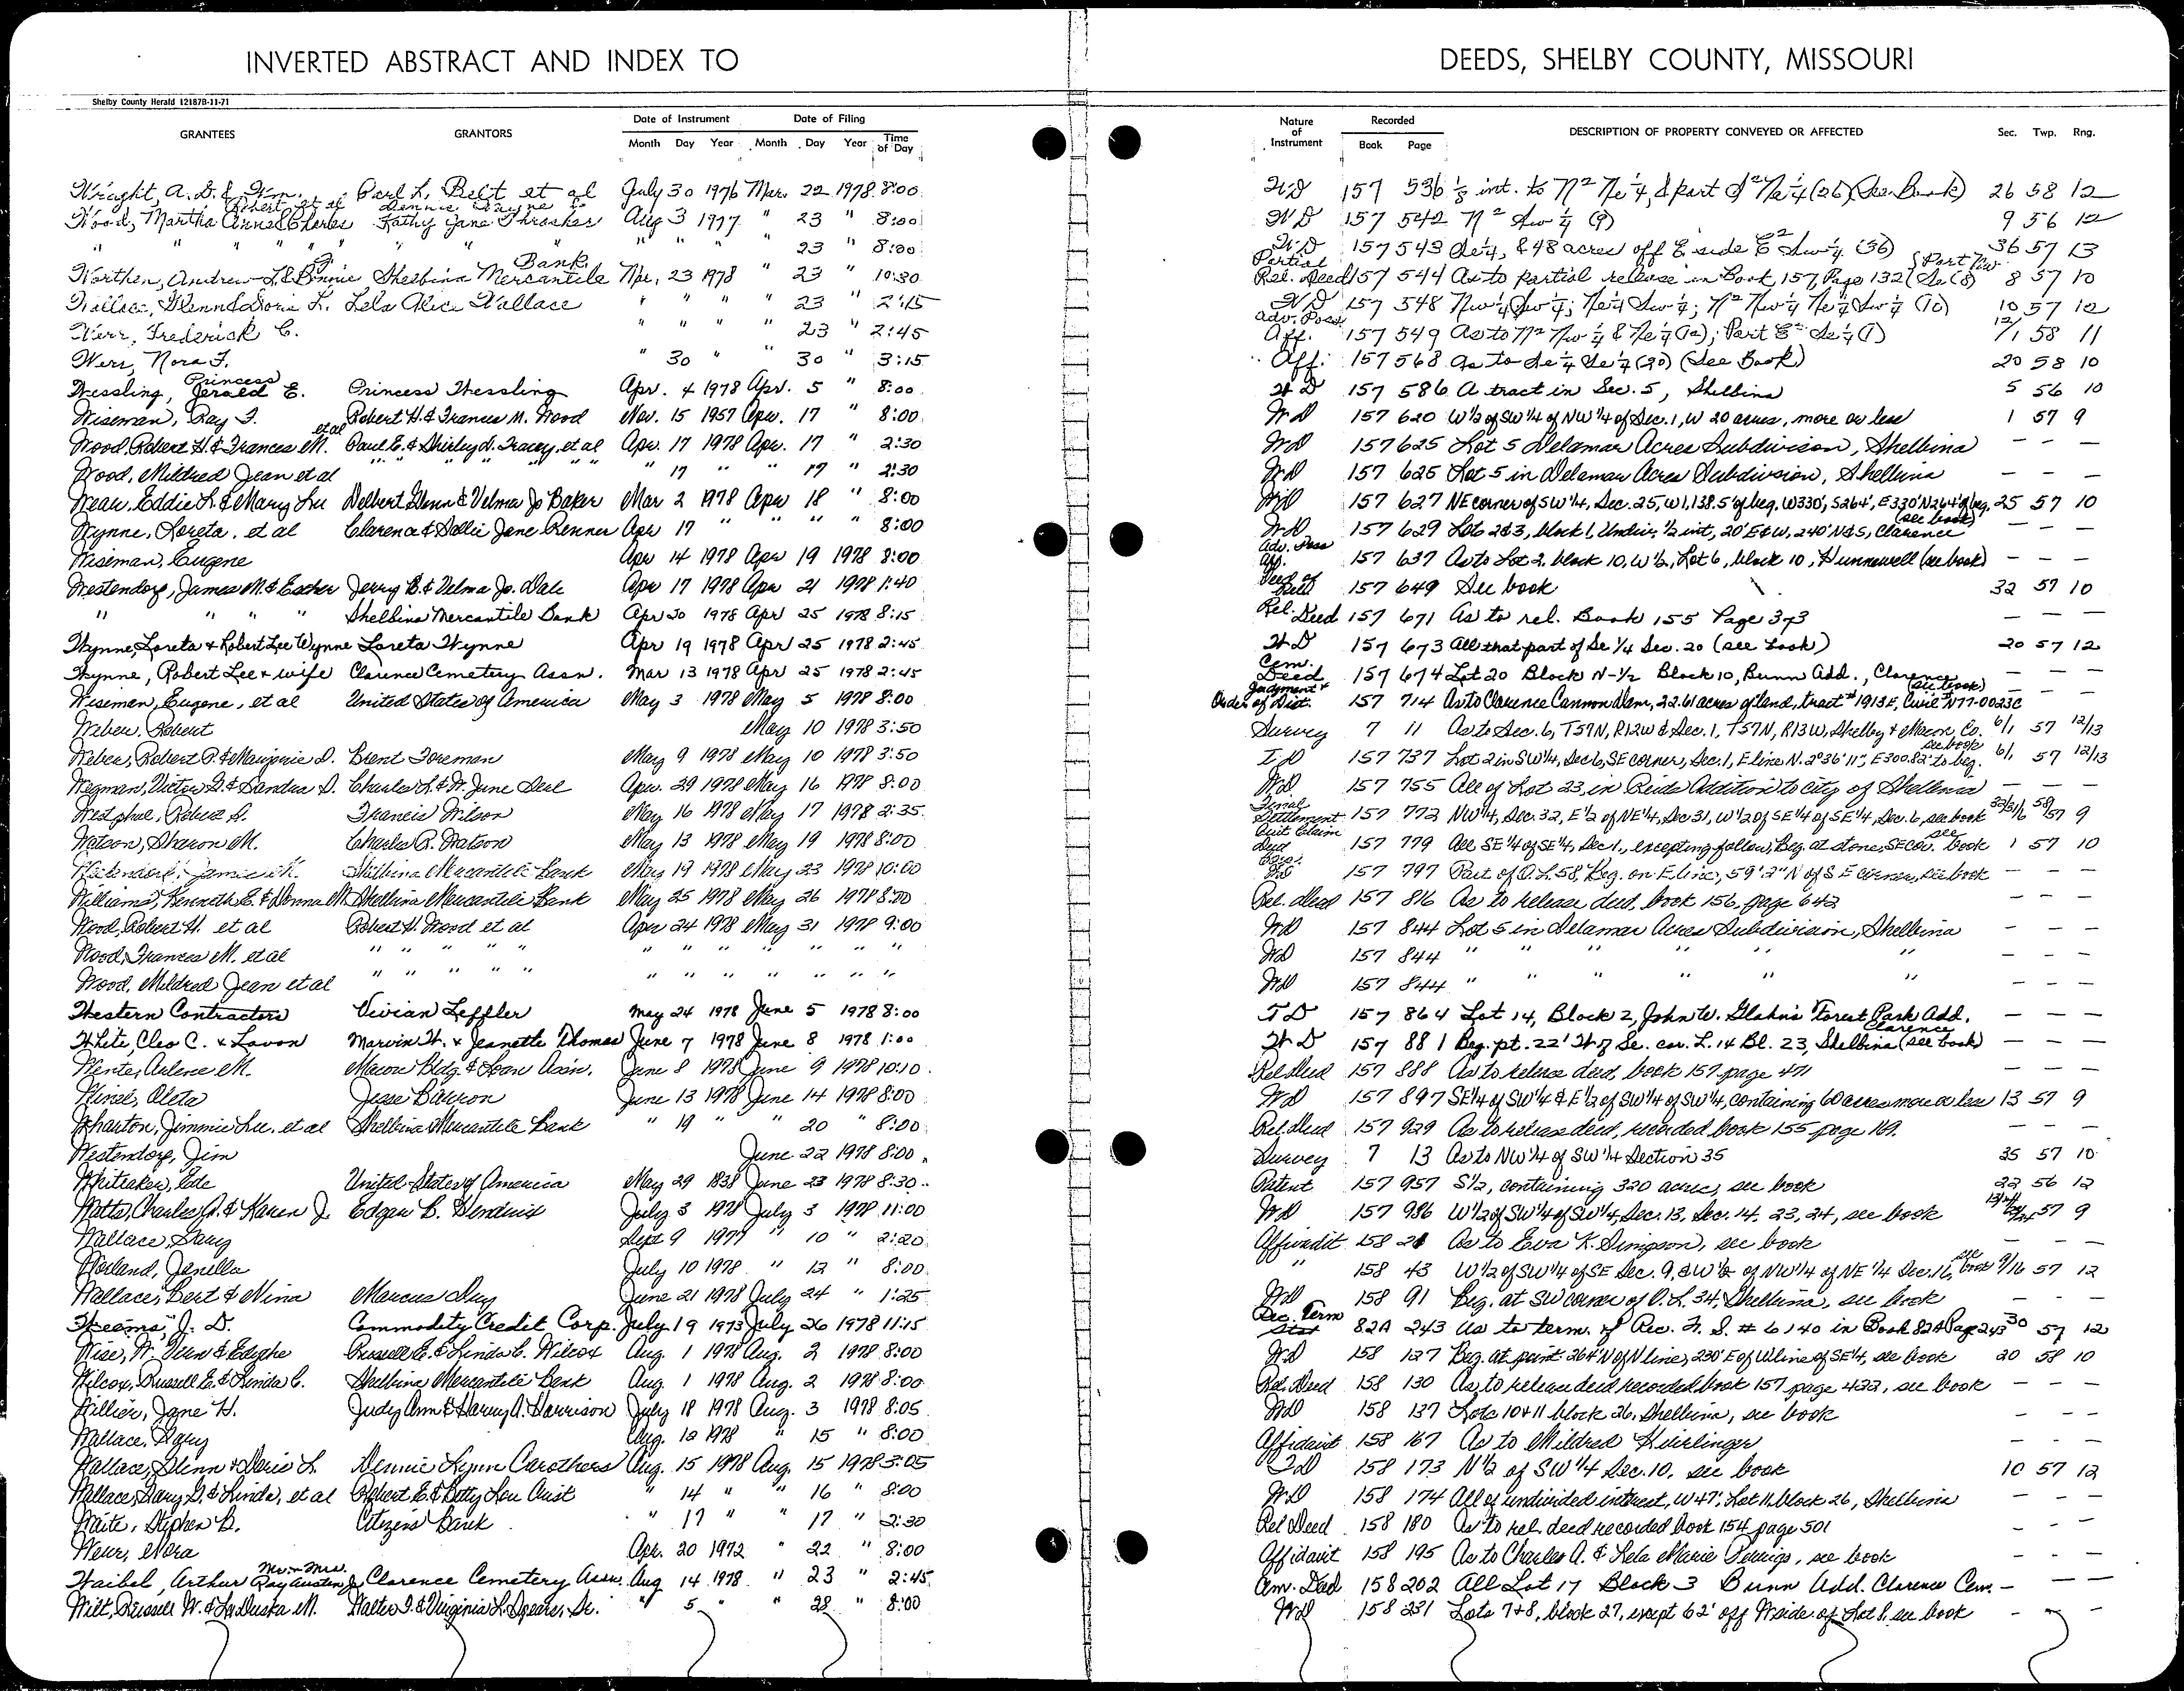 INVERTED ABSTRACT AND INDEX TO DEEDS, SHELBY COUNTY, MISSOURI
Shelby County Herald 12187B-11-71
GRANTEES GRANTORS Date of Instrument Date of Filing Nature of Instrument Recorded DESCRIPTION OF PROPERTY CONVEYED OR AFFECTED Sec. Twp. Rng.
Month Day Year Month Day Year Time of Day Book Page
Wright, A. D. & Wm. Carl L. Belt et al July 30 1976 Mar. 22 1978 8:00 WD 157 536 1/8 int. to N² Ne 1/4, & part S² Ne 1/4 (26) (See Book) 26 58 12
Wood, Martha Anne & Charles Robert et al Dennis Wayne & Kathy Jane Thrasher Aug 3 1977 " 23 " 8:00 WD 157 542 N² Sw 1/4 (9) 9 56 12
" " " " " " " " " " " 23 " 8:00 WD 157 543 Se 1/4, & 48 acres off E side E² Sw 1/4 (36) 36 57 13
Worthen, Andrew L. & Bonnie Shelbina Mercantile Bank Mar. 23 1978 " 23 " 10:30 Partial Rel. Deed 157 544 As to partial release in Book 157, Page 132 (Part Nw Se (8) 8 57 10
Wallace, Glenn & Doris L. Lela Alice Wallace " " " " 23 " 2:15 WD 157 548 Nw 1/4 Sw 1/4; Ne 1/4 Sw 1/4; N² Nw 1/4 Ne 1/4 Sw 1/4 (10) 10 57 12
Werr, Frederick C. " " " " 23 " 2:45 Adv. Poss. Aff. 157 549 As to N² Nw 1/4 & Ne 1/4 (12); Part E² Se 1/4 (1) 12/1 58 11
Werr, Nora F. " 30 " " 30 " 3:15 Aff. 157 568 As to Se 1/4 Se 1/4 (20) (See Book) 20 58 10
Wessling, Princess Jerald E. Princess Wessling Apr. 4 1978 Apr. 5 " 8:00 WD 157 586 A tract in Sec. 5, Shelbina 5 56 10
Wiseman, Ray F. Robert H. & Frances M. Wood Nov. 15 1957 Apr. 17 " 8:00 WD 157 620 W 1/2 of SW 1/4 of NW 1/4 of Sec. 1, W 20 acres, more or less 1 57 9
Wood, Robert H. & Frances M. et al Paul E. & Shirley N. Tracey, et al Apr. 17 1978 Apr. 17 " 2:30 WD 157 625 Lot 5 Delamar Acres Subdivision, Shelbina — — —
Wood, Mildred Jean et al " " " " " " " " 17 " " 17 " 2:30 WD 157 625 Lot 5 in Delamar Acres Subdivision, Shelbina — — —
Wear, Eddie L. & Mary Lu Delbert Glenn & Velma Jo Baker Mar 2 1978 Apr 18 " 8:00 WD 157 627 NE corner of SW 1/4, Sec. 25, W 1,138.5' of beg. W330', S264', E330' N264' of beg. 25 57 10
Wynne, Loreta, et al Clarence & Sallie Jane Renner Apr 17 " " " " 8:00 WD 157 629 Lots 2&3, block 1, Undiv. 1/2 int, 20' E&W, 240' N&S, Clarence (see book) — — —
Wiseman, Eugene Apr 14 1978 Apr 19 1978 8:00 Adv. Poss Aff. 157 637 As to Lot 2, block 10, W 1/2, Lot 6, block 10, Hunnewell (see book) — — —
Westendorf, James M. & Esther Jerry B. & Velma Jo. Dale Apr 17 1978 Apr 21 1978 1:40 Deed of Rel. 157 649 See book 32 57 10
" " " " Shelbina Mercantile Bank Apr 20 1978 Apr 25 1978 8:15 Rel. Deed 157 671 As to rel. Book 155 Page 373 — — —
Wynne, Loreta & Robert Lee Wynne Loreta Wynne Apr 19 1978 Apr 25 1978 2:45 WD 157 673 All that part of Se 1/4 Sec. 20 (see book) 20 57 12
Wynne, Robert Lee & wife Clarence Cemetery Assn. Mar 13 1978 Apr 25 1978 2:45 Cem. Deed 157 674 Lot 20 Block N-1/2 Block 10, Bunn Add., Clarence — —
Wiseman, Eugene, et al United States of America May 3 1978 May 5 1978 8:00 Judgment & Order of Dist. 157 714 As to Clarence Cannon Dam, 22.61 acres of land, tract #1913E, Civil N77-0023C (see book)
Weber, Robert May 10 1978 3:50 Survey 7 11 As to Sec. 6, T57N, R12W & Sec. 1, T57N, R13W, Shelby & Macon Co. 6/1 57 12/13
Weber, Robert P. & Marjorie D. Brent Foreman May 9 1978 May 10 1978 3:50 TD 157 737 Lot 2 in SW 1/4, Sec 6, SE corner, Sec. 1, E line N. 2°36'11", E300.82' to beg. see book 6/1 57 12/13
Wegman, Victor G. & Sandra S. Charles L. & W. June Deil Apr. 29 1978 May 16 1978 8:00 WD 157 755 All of Lot 23 in Reids Addition to city of Shelbina — — —
Westphal, Robert A. Francis Wilson May 16 1978 May 17 1978 2:35 Final Settlement 157 772 NW 1/4, Sec. 32, E 1/2 of NE 1/4, Sec 31, W 1/2 of SE 1/4 of SE 1/4, Sec. 6, see book 32/31/6 58/57 9
Watson, Sharon M. Charles R. Watson May 13 1978 May 19 1978 8:00 Quit Claim Deed 157 779 All SE 1/4 of SE 1/4, Sec 1., excepting follow, Beg. at stone, SE cor. see book 1 57 10
Westendorf, James M. Shelbina Mercantile Bank May 19 1978 May 23 1978 10:00 Corp. WD 157 797 Part of O.L. 58, Beg. on E line, 59'2" N of SE corner, see book — — —
Williams, Kenneth E. & Donna M. Shelbina Mercantile Bank May 25 1978 May 26 1978 8:30 Rel. Deed 157 816 As to release deed, book 156, page 642 — — —
Wood, Robert H. et al Robert H. Wood et al Apr 24 1978 May 31 1978 9:00 WD 157 844 Lot 5 in Delamar Acres Subdivision, Shelbina — — —
Wood, Frances M. et al " " " " " " " " " " " " WD 157 844 " " " " " " — — —
Wood, Mildred Jean et al " " " " " " " " " " " " WD 157 844 " " " " " " — — —
Western Contractors Vivian Leffler May 24 1978 June 5 1978 8:00 TD 157 864 Lot 14, Block 2, John W. Glahn's Forest Park Add. Clarence — — —
White, Cleo C. & Lavon Marvin H. & Jeanette Thomas June 7 1978 June 8 1978 1:00 WD 157 881 Beg. pt. 22' W of Se. cor. L. 14 Bl. 23, Shelbina (see book) — — —
Wenter, Arlene M. Macon Bldg. & Loan Assn. June 8 1978 June 9 1978 10:10 Rel Deed 157 888 As to release deed, book 157 page 471 — — —
Winsel, Aleta Jesse Barron June 13 1978 June 14 1978 8:00 WD 157 897 SE 1/4 of SW 1/4 & E 1/2 of SW 1/4 of SW 1/4, containing 60 acres more or less 13 57 9
Wharton, Jimmie Lee, et al Shelbina Mercantile Bank " 19 " " 20 " 8:00 Rel. Deed 157 929 As to release deed, recorded book 155 page 169. — — —
Westendorf, Jim June 22 1978 8:00 Survey 7 13 As to NW 1/4 of SW 1/4 Section 35 35 57 10
Whitaker, Cole United States of America May 29 1838 June 23 1978 8:30 Patent 157 957 S 1/2, containing 320 acres, see book 22 56 12
Watts, Charles A. & Karen J. Edgar B. Hendrix July 3 1978 July 3 1978 11:00 WD 157 986 W 1/2 of SW 1/4 of SW 1/4, Sec. 13, Sec. 14, 23, 24, see book 13/14/23/24 57 9
Wallace, Gary Sept 9 1977 " 10 " 2:20 Affivadit 158 21 As to Eva K. Simpson, see book — — —
Worland, Janella July 10 1978 " 12 " 8:00 " 158 43 W 1/2 of SW 1/4 of SE Sec. 9, & W 1/2 of NW 1/4 of NE 1/4 Sec. 16, see book 9/16 57 12
Wallace, Bert & Nina Marcus Guy June 21 1978 July 24 " 1:25 WD 158 91 Beg. at SW corner of O.L. 34, Shelbina, see book — - —
Weems, J. D. Commodity Credit Corp. July 19 1973 July 26 1978 11:15 Rec. Term Stat 82A 243 As to term. of Rec. F. S. # 6140 in Book 82A Page 243 30 57 12
Wise, W. Vern & Edythe Russell E. & Linda C. Wilcox Aug. 1 1978 Aug. 2 1978 8:00 WD 158 127 Beg. at point 264' N of N line, 230' E of W line of SE 1/4, see book 20 58 10
Wilcox, Russell E. & Linda C. Shelbina Mercantile Bank Aug. 1 1978 Aug. 2 1978 8:00 Rel. Deed 158 130 As to release deed recorded book 157 page 422, see book — — —
Willier, Jane H. Judy Ann & Harvey A. Harrison July 18 1978 Aug. 3 1978 8:05 WD 158 137 Lots 10 & 11 block 26, Shelbina, see book — — —
Wallace, Gary Aug. 12 1978 " 15 " 8:00 Affidavit 158 167 As to Mildred Keirlinger — - —
Wallace, Glenn & Doris L. Dennie Lynn Carothers Aug. 15 1978 Aug. 15 1978 3:05 TD 158 173 N 1/2 of SW 1/4 Sec. 10, see book 10 57 12
Wallace, Gary G. & Linda, et al Robert E. & Betty Lou Aust " 14 " " 16 " 8:00 WD 158 174 All of undivided interest, W 47', Lot 11, block 26, Shelbina — — —
Waite, Stephen B. Citizens Bank " 17 " " 17 " 2:30 Rel Deed 158 180 As to rel. deed recorded book 154 page 501 — — —
Werr, Nora Apr. 20 1972 " 22 " 8:00 Affidavit 158 195 As to Charles A. & Lela Marie Perrigo, see book — — —
Waibel, Arthur Mr. & Mrs. Ray Austen Jr Clarence Cemetery Assn. Aug 14 1978 " 23 " 2:45 Cem. Deed 158 202 All Lot 17 Block 3 Bunn Add. Clarence Cem. — — —
Wilt, Russell W. & LaDuska M. Walter I. & Virginia L. Spears, Sr. " 5 " " 28 " 8:00 WD 158 231 Lots 7&8, block 27, except 62' off W side of Lot 8, see book — — —